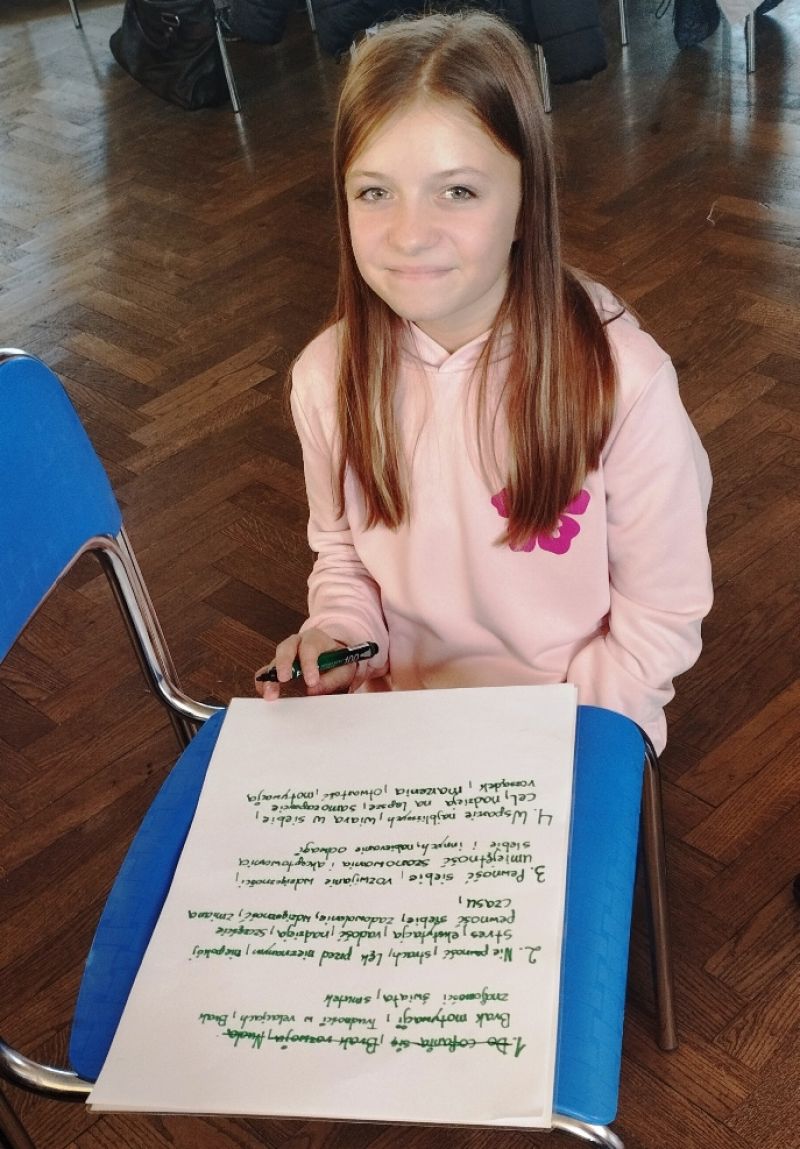 1. Do cofania się, Brak rozwoju, Nuda.
Brak motywacji, Trudności w relacjach, Brak
znajomości świata, smutek
2. Nie pewność, strach, Lęk przed nieznanym, niepokój
stres, ekscytacja, radość, nadzieja, szczęście
pewność siebie, zadowolenie, wdzięczność, zmiana
czasu,
3. Pewność siebie, rozwijanie wdzięczności,
umiejętność szanowania i akceptowania
siebie i innych, nabieranie odwagi
4. Wsparcie najbliższych, wiara w siebie,
cel, nadzieja na lepsze, samozaparcie
rozsądek, marzenia, otwartość, motywacja